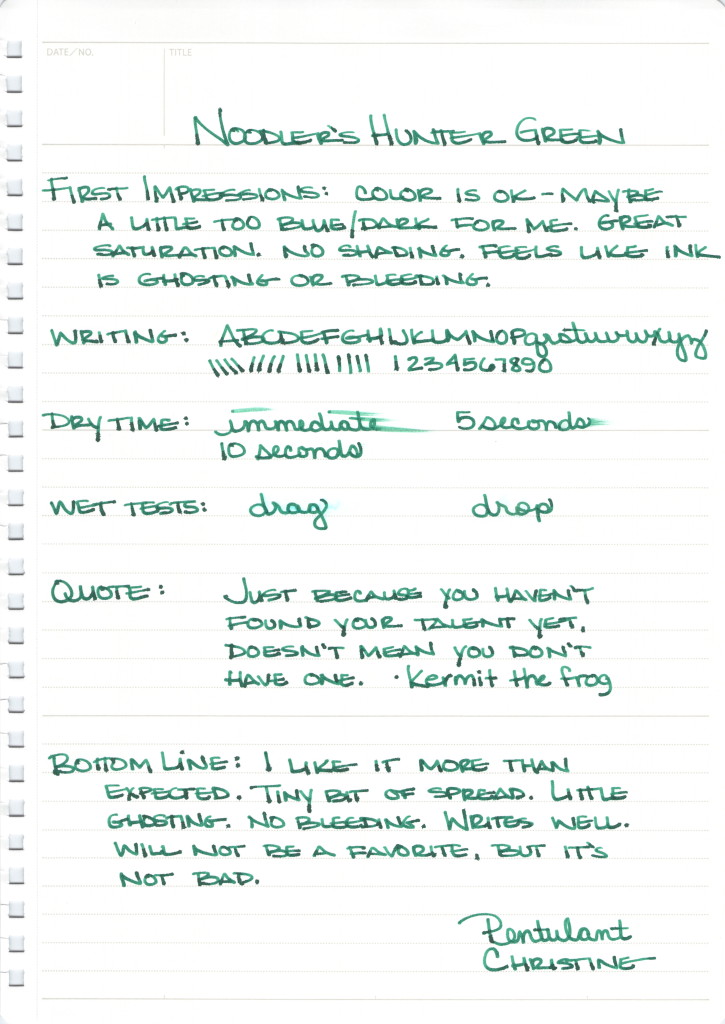 DATE/NO. TITLE
NOODLER'S HUNTER GREEN
FIRST IMPRESSIONS: COLOR IS OK - MAYBE
A LITTLE TOO BLUE/DARK FOR ME. GREAT
SATURATION. NO SHADING. FEELS LIKE INK
IS GHOSTING OR BLEEDING.
WRITING: ABCDEFGHIJKLMNOPqrstuvwxyz
1234567890
DRY TIME: immediate 5 seconds
10 seconds
WET TESTS: drag drop
QUOTE: JUST BECAUSE YOU HAVEN'T
FOUND YOUR TALENT YET,
DOESN'T MEAN YOU DON'T
HAVE ONE. · Kermit the frog
BOTTOM LINE: I LIKE IT MORE THAN
EXPECTED. TINY BIT OF SPREAD. LITTLE
GHOSTING. NO BLEEDING. WRITES WELL.
WILL NOT BE A FAVORITE, BUT IT'S
NOT BAD.
Pentulant
CHRISTINE